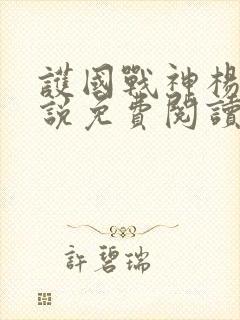 護國戰神楊
說免費閱讀
許碧瑞